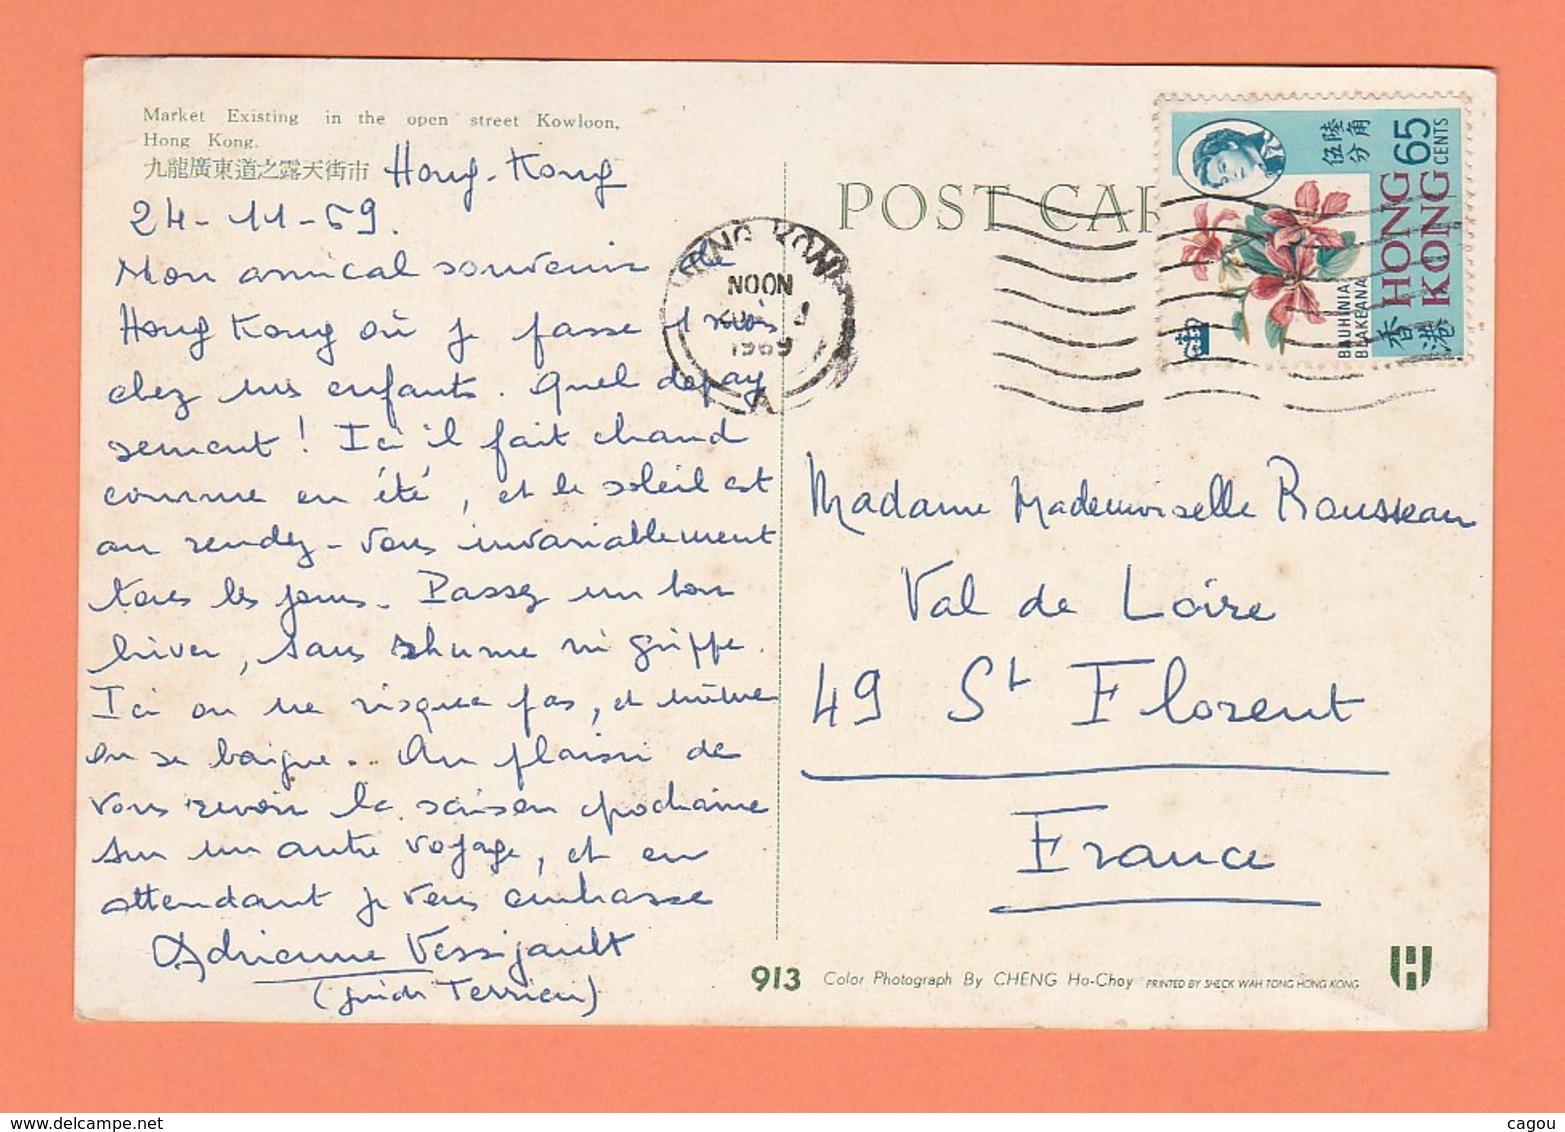 Market Existing in the open street Kowloon,
Hong Kong.
九龍廣東道之露天街市
Hong-Kong
24-11-69.
Mon amical souvenir de
Hong Kong où je passe 1 mois
chez mes enfants. Quel depay
sement! Ici il fait chaud
comme en été, et le soleil est
au rendez-vous invariablement
tous les jours. Passez un bon
hiver, sans rhume ni grippe.
Ici on ne risque pas, et même
on se baigne.. Au plaisir de
vous revoir la saison prochaine
sur un autre voyage, et en
attendant je vous embrasse
Adrienne
(guide Terrien)
POST CAR
HONG KONG
NOON
1969
A
陸角
伍分
65
CENTS
HONG
KONG
香港
BAUHINIA
BLAKEANA
Madame Mademoiselle Rousseau
Val de Loire
49 St Florent
France
913 Color Photograph By CHENG Ho-Choy PRINTED BY SHECK WAH TONG HONG KONG
cagou